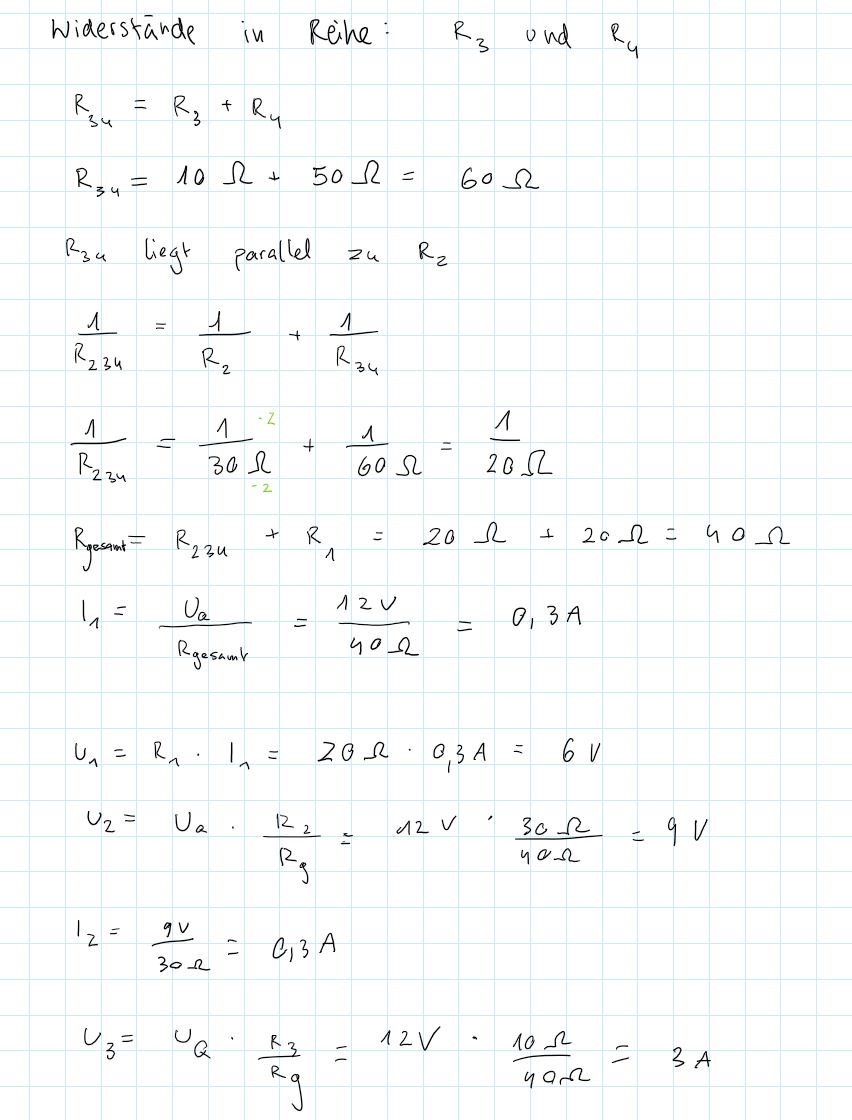 Widerstände in Reihe: R₃ und R₄
R₃₄ = R₃ + R₄
R₃₄ = 10 Ω + 50 Ω = 60 Ω
R₃₄ liegt parallel zu R₂
1/R₂₃₄ = 1/R₂ + 1/R₃₄
1/R₂₃₄ = 1 ·2/30 Ω ·2 + 1/60 Ω = 1/20 Ω
Rgesamt = R₂₃₄ + R₁ = 20 Ω + 20 Ω = 40 Ω
I₁ = Uₐ/Rgesamt = 12 V/40 Ω = 0,3 A
U₁ = R₁ · I₁ = 20 Ω · 0,3 A = 6 V
U₂ = Uₐ · R₂/Rg = 12 V · 30 Ω/40 Ω = 9 V
I₂ = 9 V/30 Ω = 0,3 A
U₃ = U_Q · R₃/Rg = 12 V · 10 Ω/40 Ω = 3 A